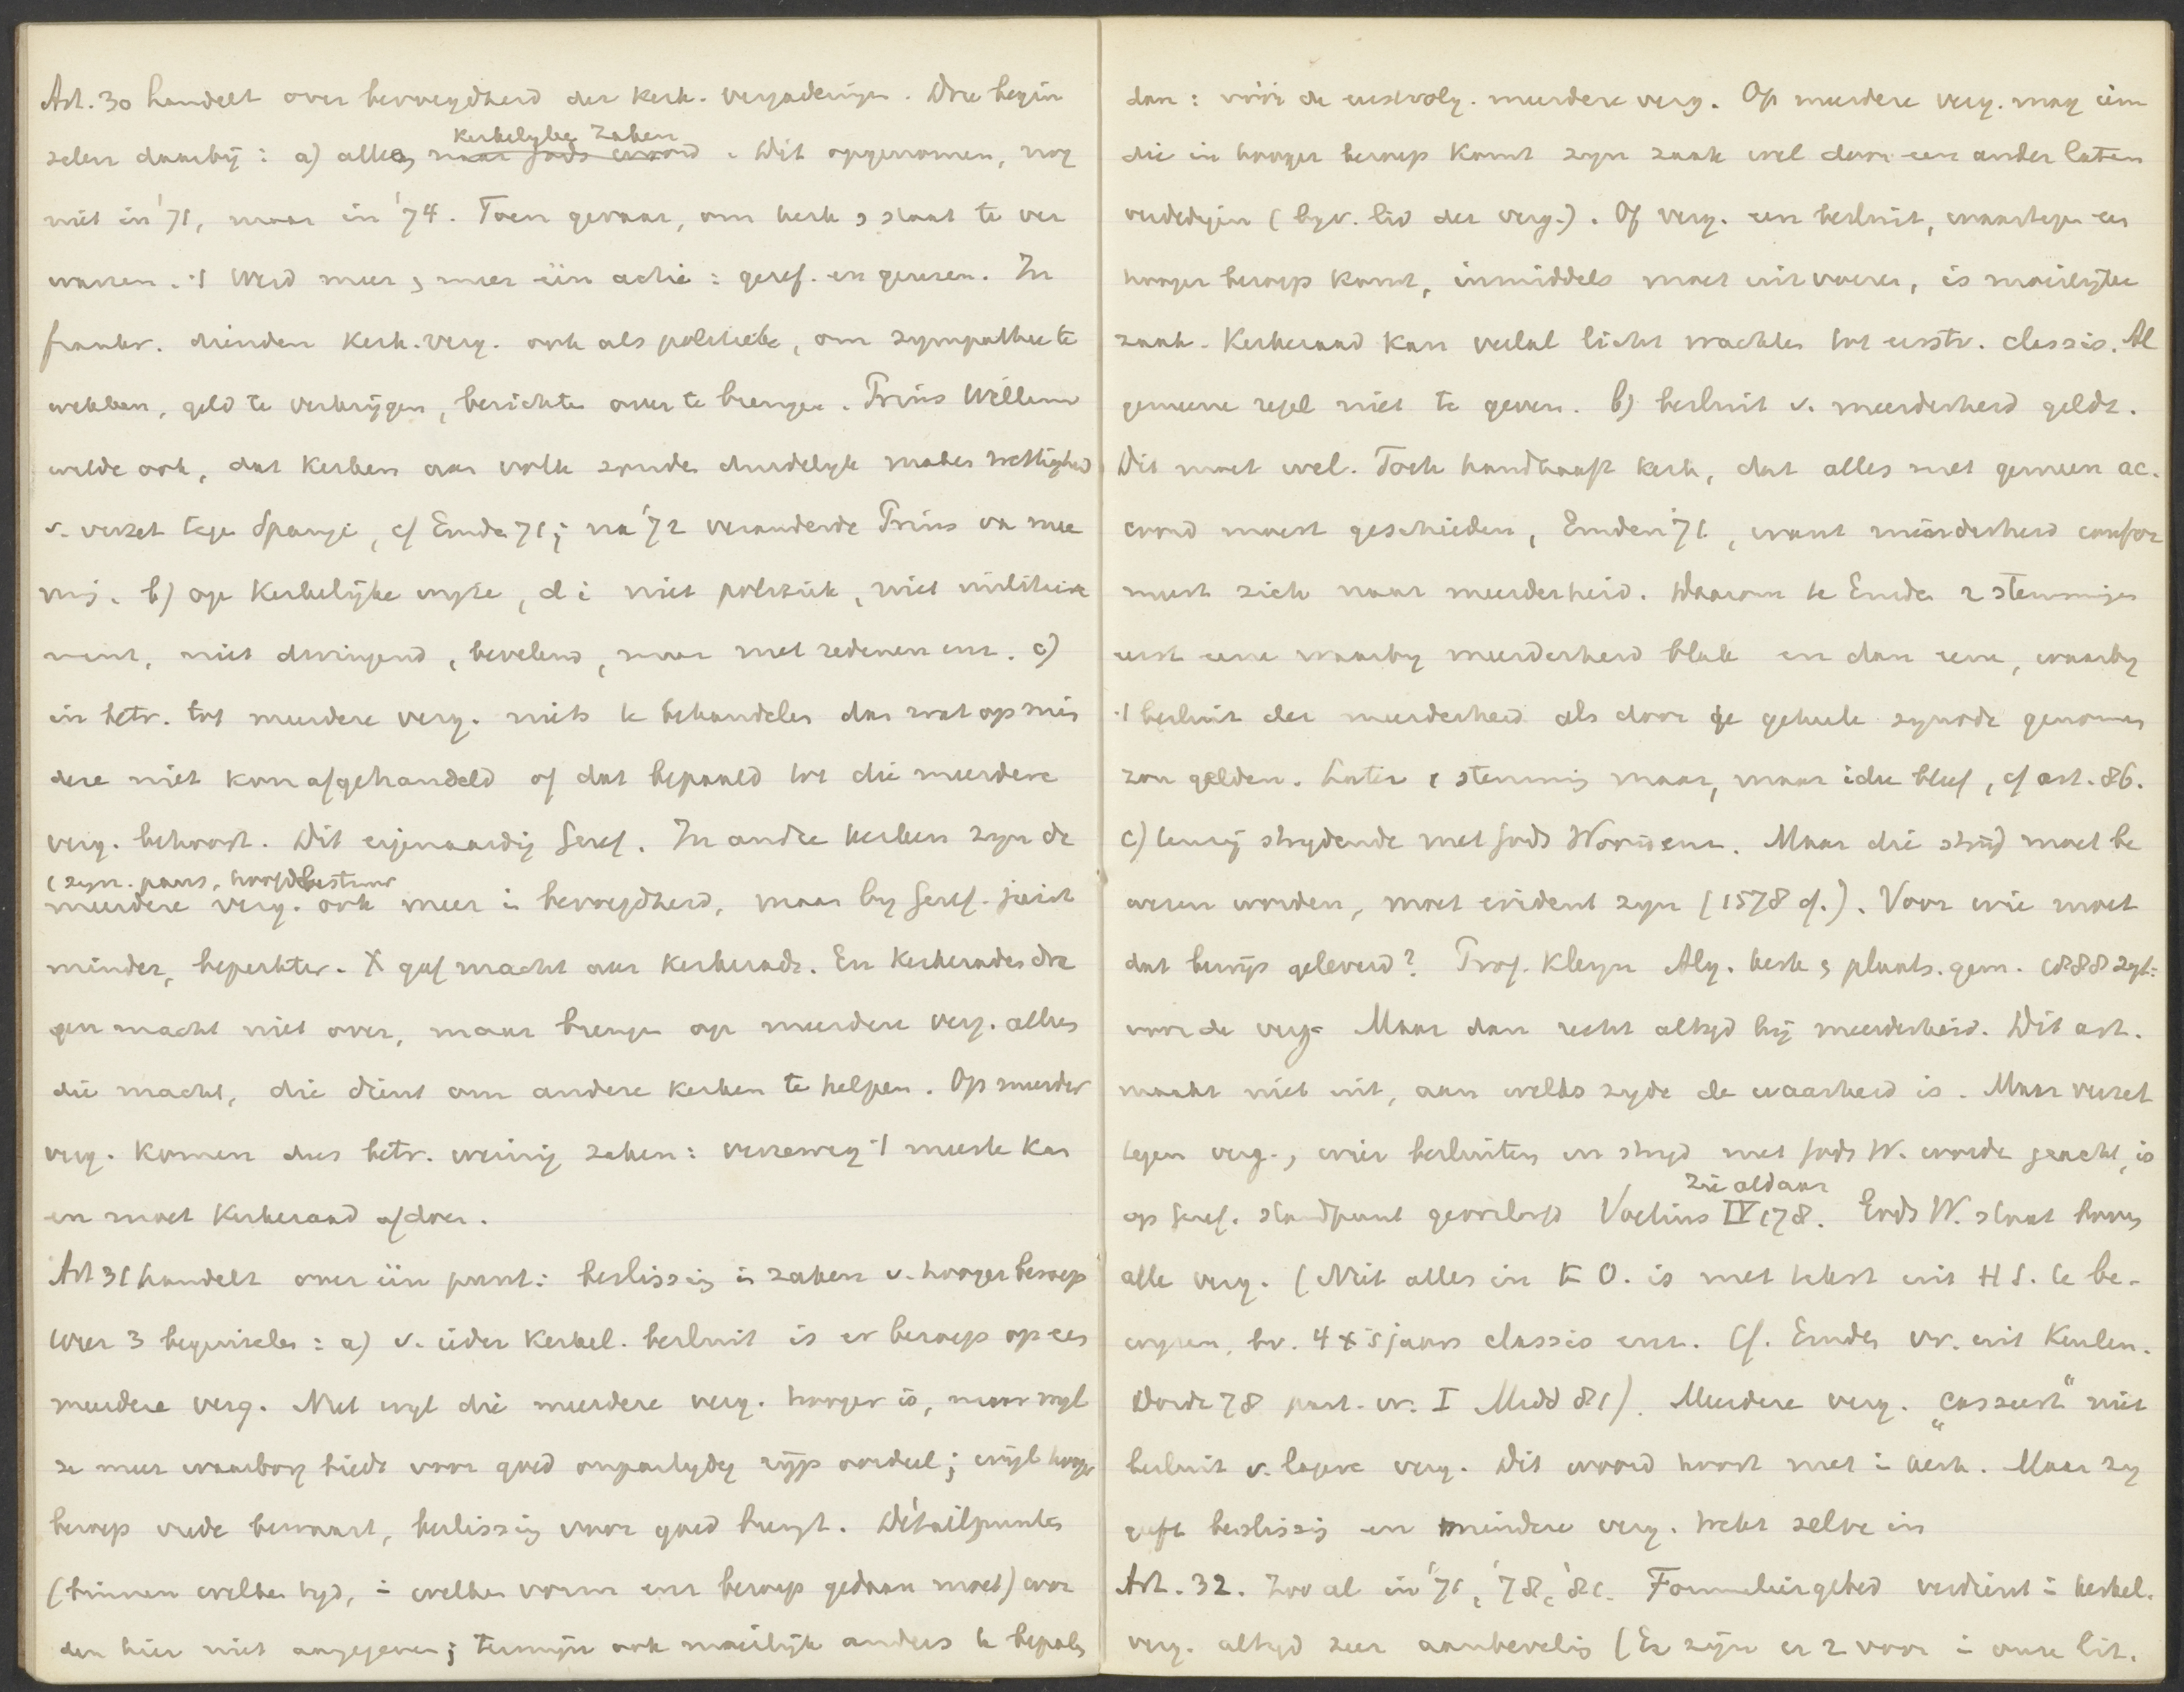 Art. 30 handelt over bevoegdheid der kerk. vergaderingen. Drie begin
selen daarbij: a) alleen naar Gods woord kerkelyke zaken. Dit opgenomen, nog
niet in '71, maar in '74. Toen gevaar, om kerk & staat te ver
warren. 't Werd meer & meer één actie: geref. en geuzen. In
frankr. dienden kerk. verg. ook als politieke, om sympathie te
wekken, geld te verkrijgen, berichten over te brengen. Prins Willem
wilde ook, dat kerken aan volk zouden duidelyk maken wettigheid
v. verzet tegen Spanje, cf Emden 71; na '72 veranderde Prins van mee
ning. b) op kerkelijke wyze, d i niet politiek, niet militair
niet dwingend, bevelend, maar met redenen enz. c)
in betr. tot meerdere verg. niets te behandelen dan wat op min
dere niet kon afgehandeld of dat bepaald tot die meerdere
verg. behoort. Dit eigenaardig Geref. In andre kerken zyn de
(syn. paus, hoofdbestuur
meerdere verg. ook meer in bevoegdheid, maar by Geref. juist
minder, beperkter. X gaf macht aan kerkeraden. En kerkeraden dra
gen macht niet over, maar brengen op meerdere verg. alles
die macht, die dient om andere kerken te helpen. Op meerder
verg. komen dus betr. weinig zaken: verreweg 't meeste kan
en moet kerkeraad afdoen.
Art 31 handelt over één punt: beslissing in zaken v. hooger beroep
Weer 3 beginselen: a) v. ieder kerkel. besluit is er beroep op een
meerdere verg. Niet wyl die meerdere verg. hooger is, maar wyl
ze meer waarborg biedt voor goed onpartydig ryp oordeel; wijl hooger
beroep vrede bewaart, beslissing voor goed brengt. Détailpunten
(binnen welken tyd, in welken vorm enz beroep gedaan moet) wor
den hier niet aangegeven; termijn ook moeilijk anders te bepalen
dan: vóór de eerstvolg. meerdere verg. Op meerdere verg. mag iem
die in hooger beroep komt zyn zaak wel door een ander laten
verdedigen (byv. lid der verg.). Of verg. een besluit, waartegen een
hooger beroep komt, inmiddels moet uitvoeren, is moeilyke
zaak. Kerkeraad kan veelal licht wachten tot eerstv. classis. Al
gemeene regel niet te geven. b) besluit v. meerderheid geldt.
Dit moet wel. Toch handhaaft kerk, dat alles met gemeen ac-
coord moest geschieden, Emden '71, want minderheid confor
meert zich naar meerderheid. Daarom te Emden 2 stemmingen
eerst eene waarby meerderheid bleek en dan eene, waarby
't besluit der meerderheid als door de geheele synode genomen
zou gelden. Later 1 stemming maar, maar idee bleef, cf art. 86.
c) tenzij strydende met Gods Woord enz. Maar die strijd moet be
wezen worden, moet evident zyn (1578 cf.). Voor wie moet
dat bewijs geleverd? Prof. Kleyn Alg. kerk & plaats. gem. 1888 zegt:
voor de verg. Maar dan recht altyd bij meerderheid. Dit art.
maakt niet uit, aan welks zyde de waarheid is. Maar verzet
tegen verg., wier besluiten in stryd met Gods W. worden geacht, is
op Geref. standpunt geoorloofd Voetius IV 178. zie aldaar Gods W. staat boven
alle verg. (Niet alles in K O. is met tekst uit H S. te be-
wyzen, bv. 4 x 's jaars classis enz. Cf. Emden vr. uit Keulen.
Dordr 78 part. vr. I Midd 81). Meerdere verg. „casseert” niet
besluit v. lagere verg. Dit woord hoort niet in kerk. Maar zy
geeft beslissing en mindere verg. trekt zelve in
Art. 32. Zoo al in '71, '78, '81. Formuliergebed verdient in kerkel.
verg. altyd zeer aanbeveling (Er zijn er 2 voor in onze lit.